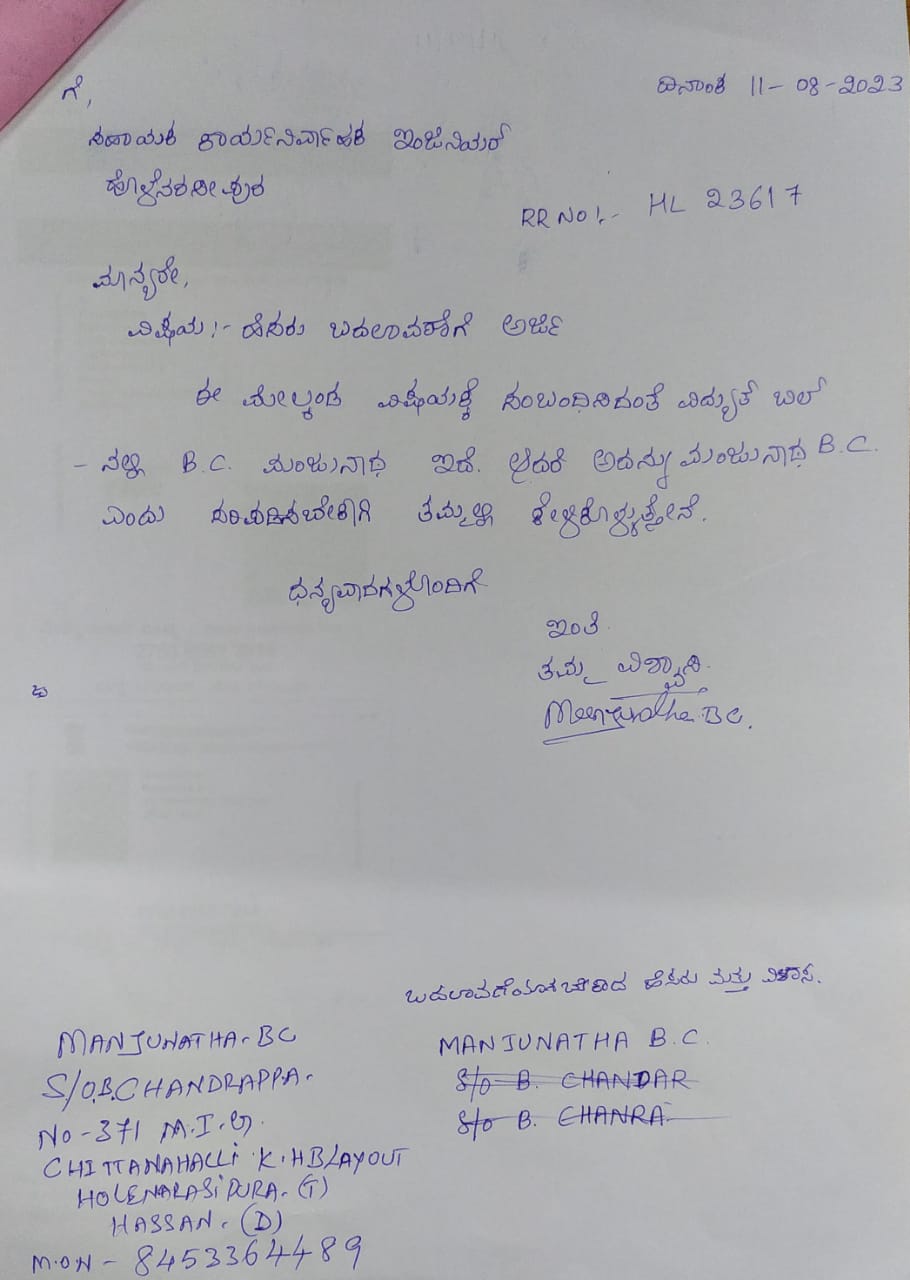 ದಿನಾಂಕ 11-08-2023
ಗೆ,
ಸಹಾಯಕ ಕಾರ್ಯನಿರ್ವಾಹಕ ಇಂಜಿನಿಯರ್
ಹೊಳೆನರಸೀಪುರ
RR NO!.- HL 23617
ಮಾನ್ಯರೇ,
ವಿಷಯ!- ಹೆಸರು ಬದಲಾವಣೆಗೆ ಅರ್ಜಿ
ಈ ಮೇಲ್ಕಂಡ ವಿಷಯಕ್ಕೆ ಸಂಬಂಧಿಸಿದಂತೆ ವಿದ್ಯುತ್ ಬಿಲ್
- ನಲ್ಲಿ B.C. ಮಂಜುನಾಥ ಇದೆ. ಆದರೆ ಅದನ್ನು ಮಂಜುನಾಥ B.C.
ಎಂದು ಸರಿಪಡಿಸಬೇಕಾಗಿ ತಮ್ಮಲ್ಲಿ ಕೇಳಿಕೊಳ್ಳುತ್ತೇನೆ.
ಧನ್ಯವಾದಗಳೊಂದಿಗೆ
ಇಂತಿ
ತಮ್ಮ ವಿಶ್ವಾಸಿ.
Manjunatha BC.
ಬದಲಾವಣೆಯಾಗಬೇಕಾದ ಹೆಸರು ಮತ್ತು ವಿಳಾಸ.
MANJUNATHA B.C.
S/O B. CHANDAR
S/O B. CHANRA
MANJUNATHA. BC
S/O.B.CHANDRAPPA.
NO-371 M.I.G.
CHITTANAHALLI K.HBLAYOUT
HOLENARASIPURA. (T)
HASSAN. (D)
M.ON - 8453364489